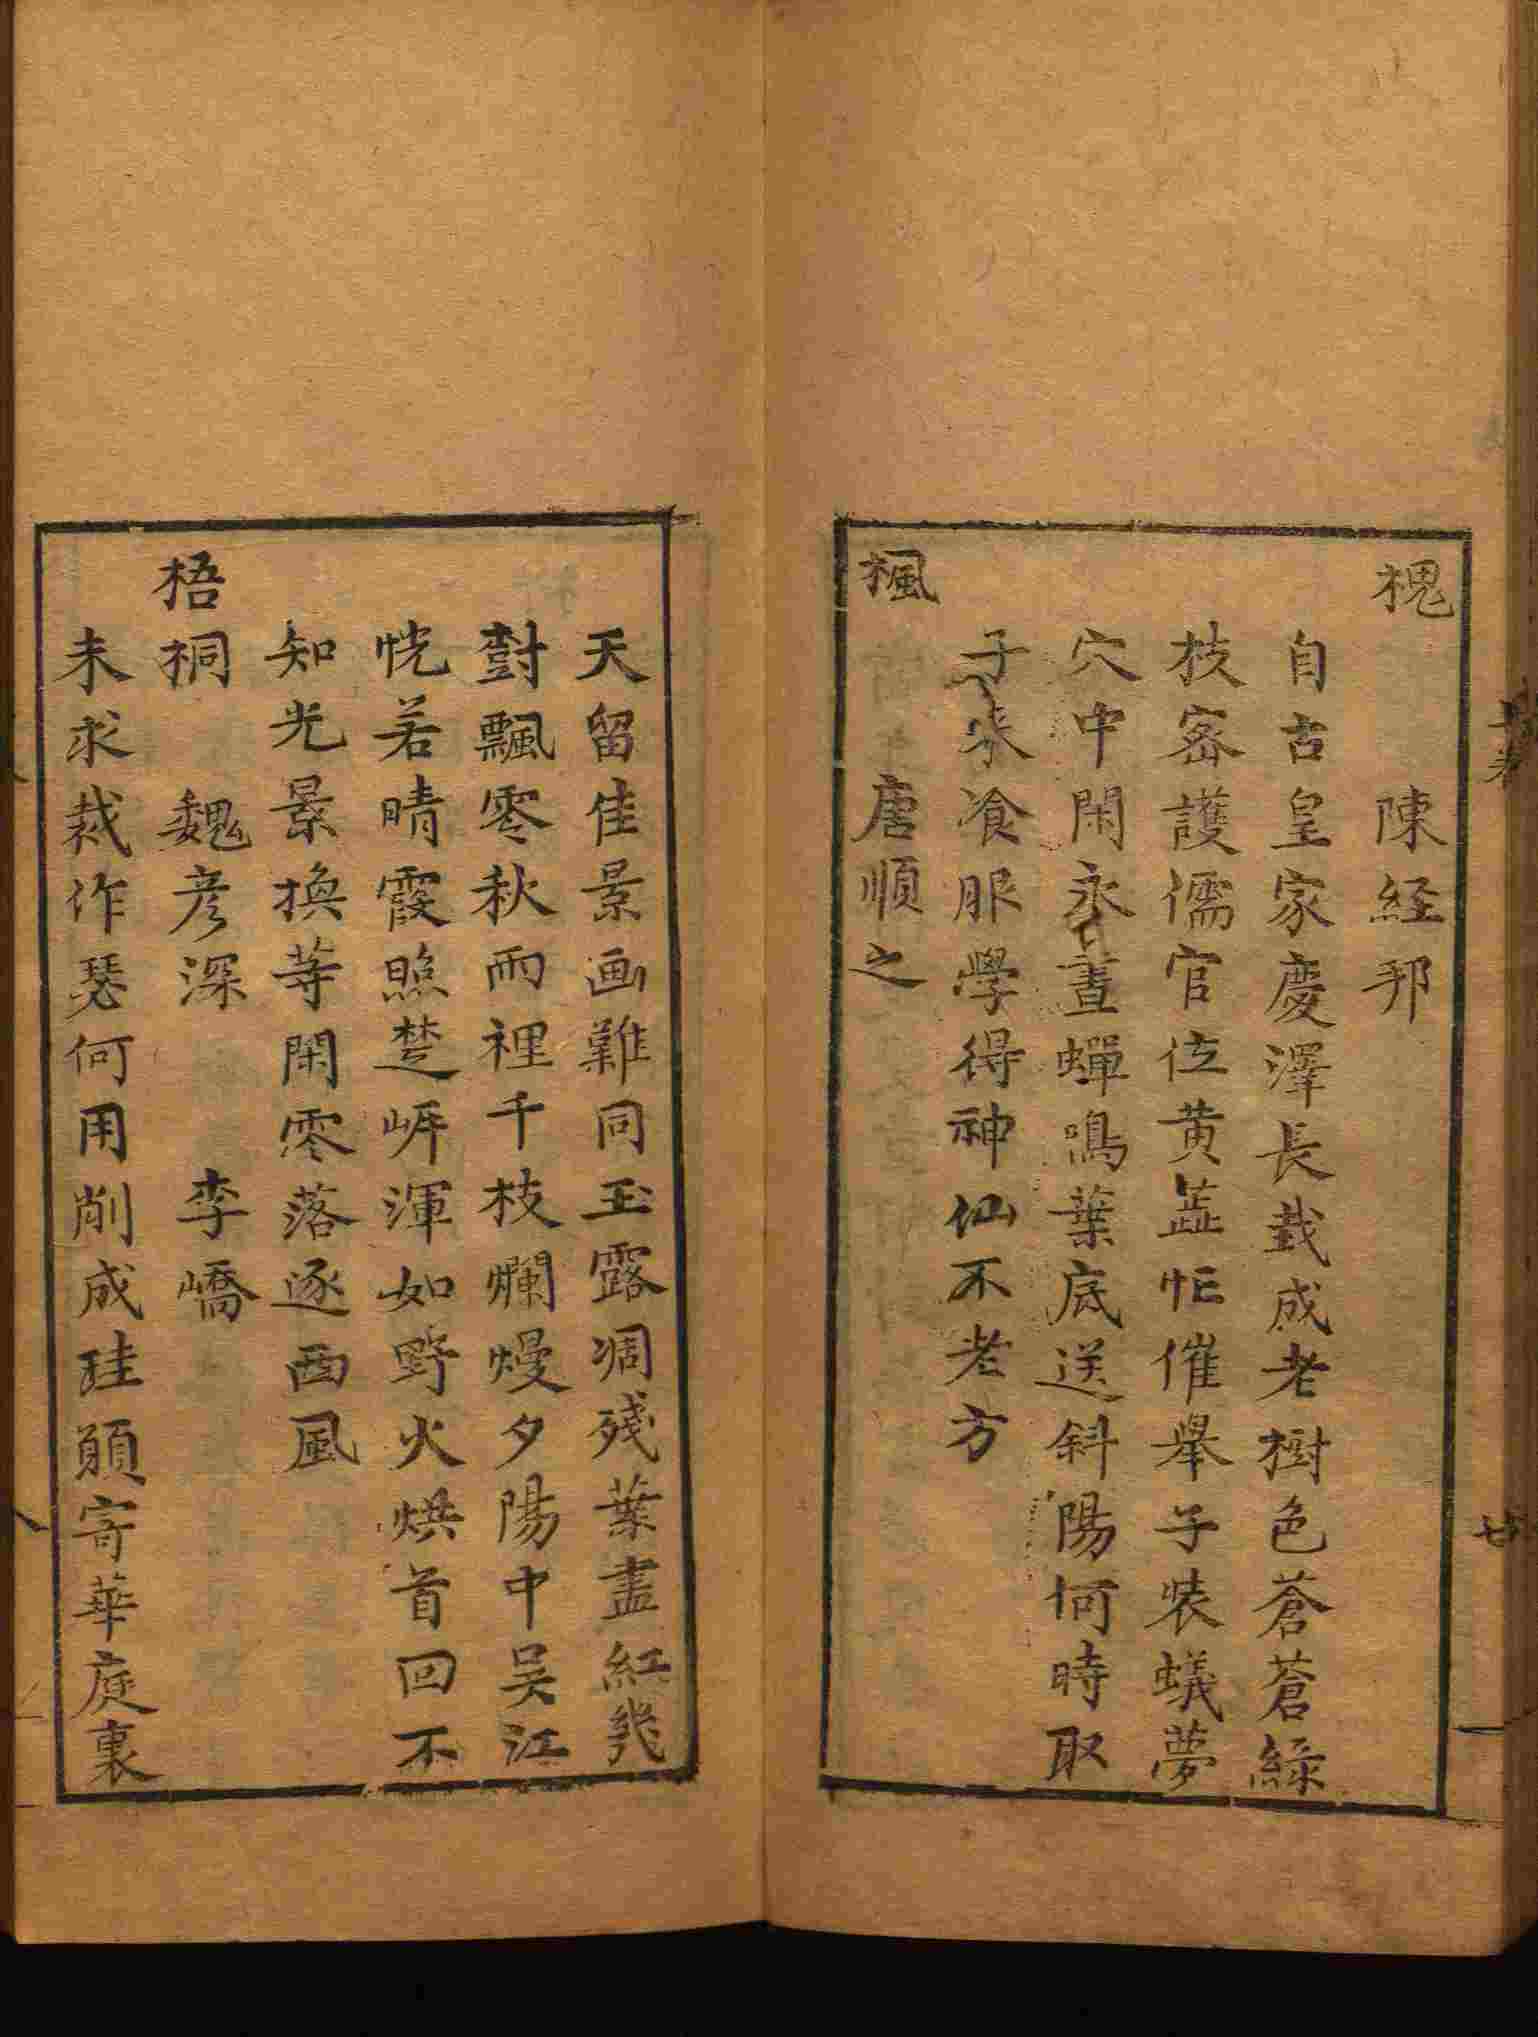 槐　陳經邦
自古皇家慶澤長栽成老樹色蒼蒼緑
枝密護儒官位黄蘂忙催舉子裝蟻夢
穴中閑永晝蟬鳴葉底送斜陽何時取
子來飡服學得神仙不老方
楓　唐順之
天留佳景画難同玉露凋殘葉盡紅幾
對飄零秋雨裡千枝爛熳夕陽中吴江
恍若晴霞照楚岸渾如野火烘首回不
知光景換等閑零落逐西風
梧桐　魏彦深　李嶠
未求裁作瑟何用削成珪願寄華庭裏